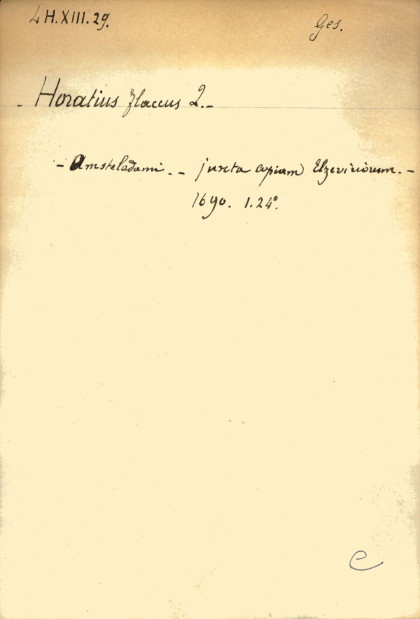 4 H.XIII.29.
Ges.
- Horatius Flaccus Q. -
- Amsteladami. - juxta copiam Elzeviriorum. -
1690. 1.24°.
C